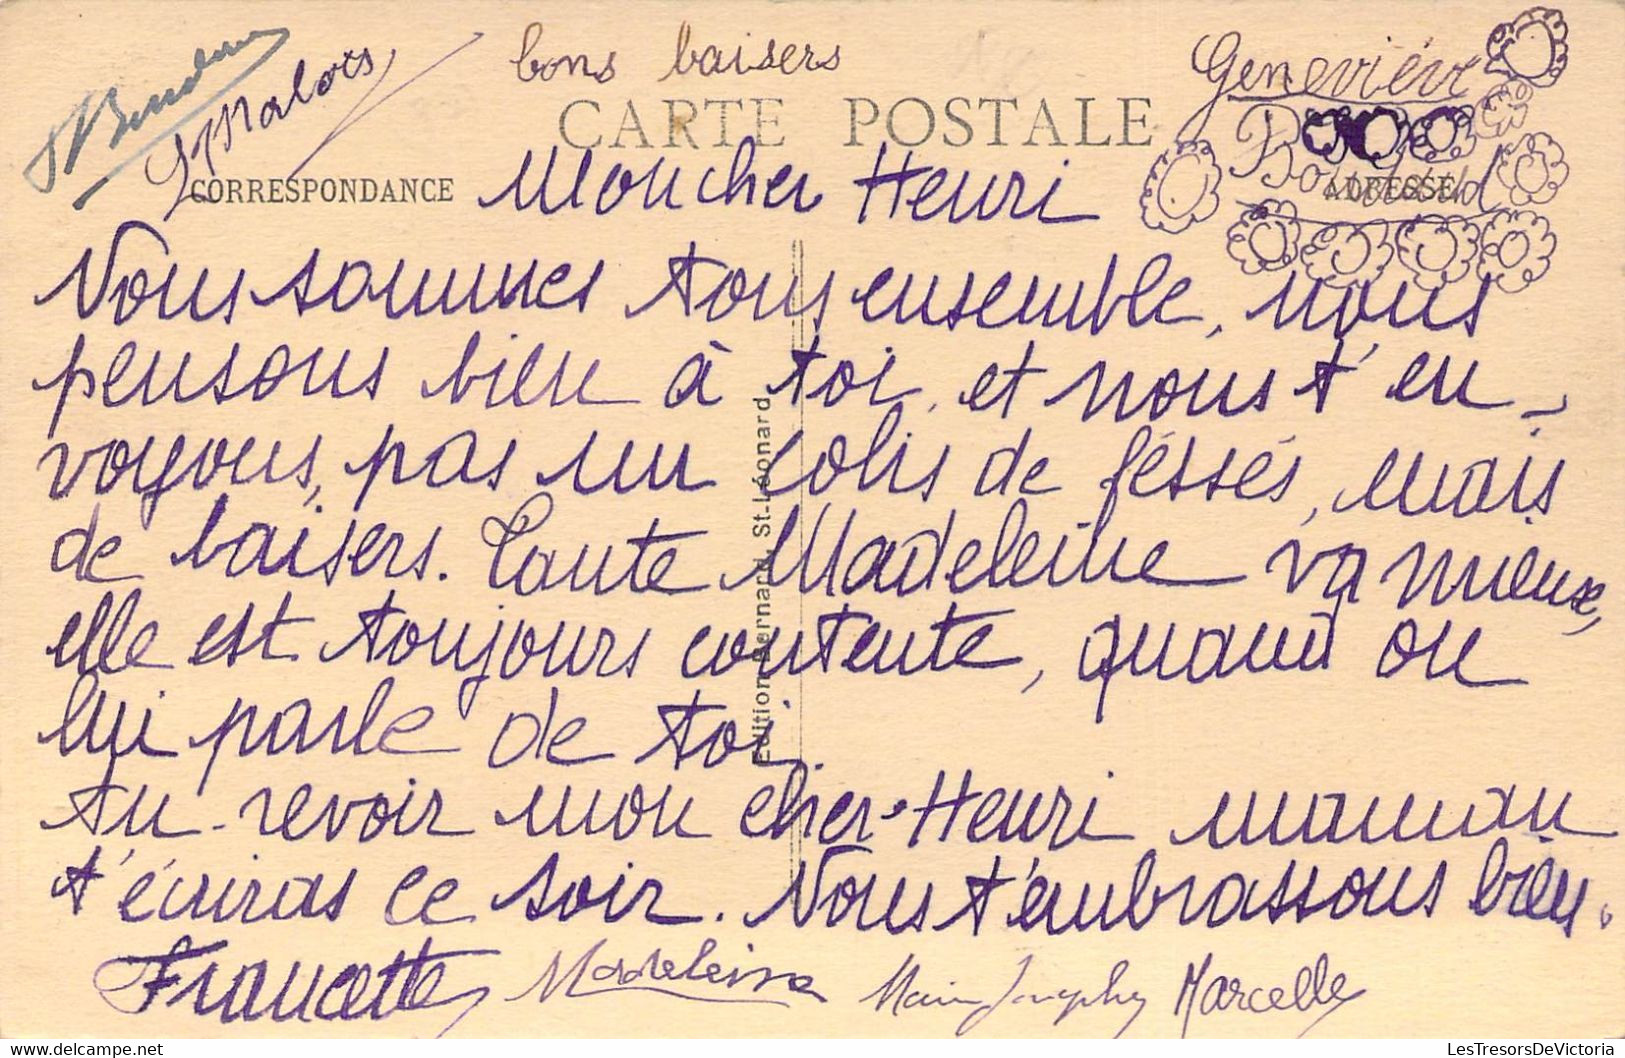 bons baisers
Geneviève
CARTE POSTALE
CORRESPONDANCE
ADRESSE
Malois
Mon cher Henri
Nous sommes tous ensemble, nous
pensons bien à toi, et nous t'en-
voyons, pas un colis de féssés, mais
de baisers. Tante Madeleine va mieux,
elle est toujours contente, quand on
lui parle de toi.
Au revoir mon cher Henri maman
t'écriras ce soir. Nous t'embrassons bien.
Francette Madeleine Marcelle
Edition Bernard, St-Léonard
LesTresorsDeVictoria
LesTresorsDeVictoria.com